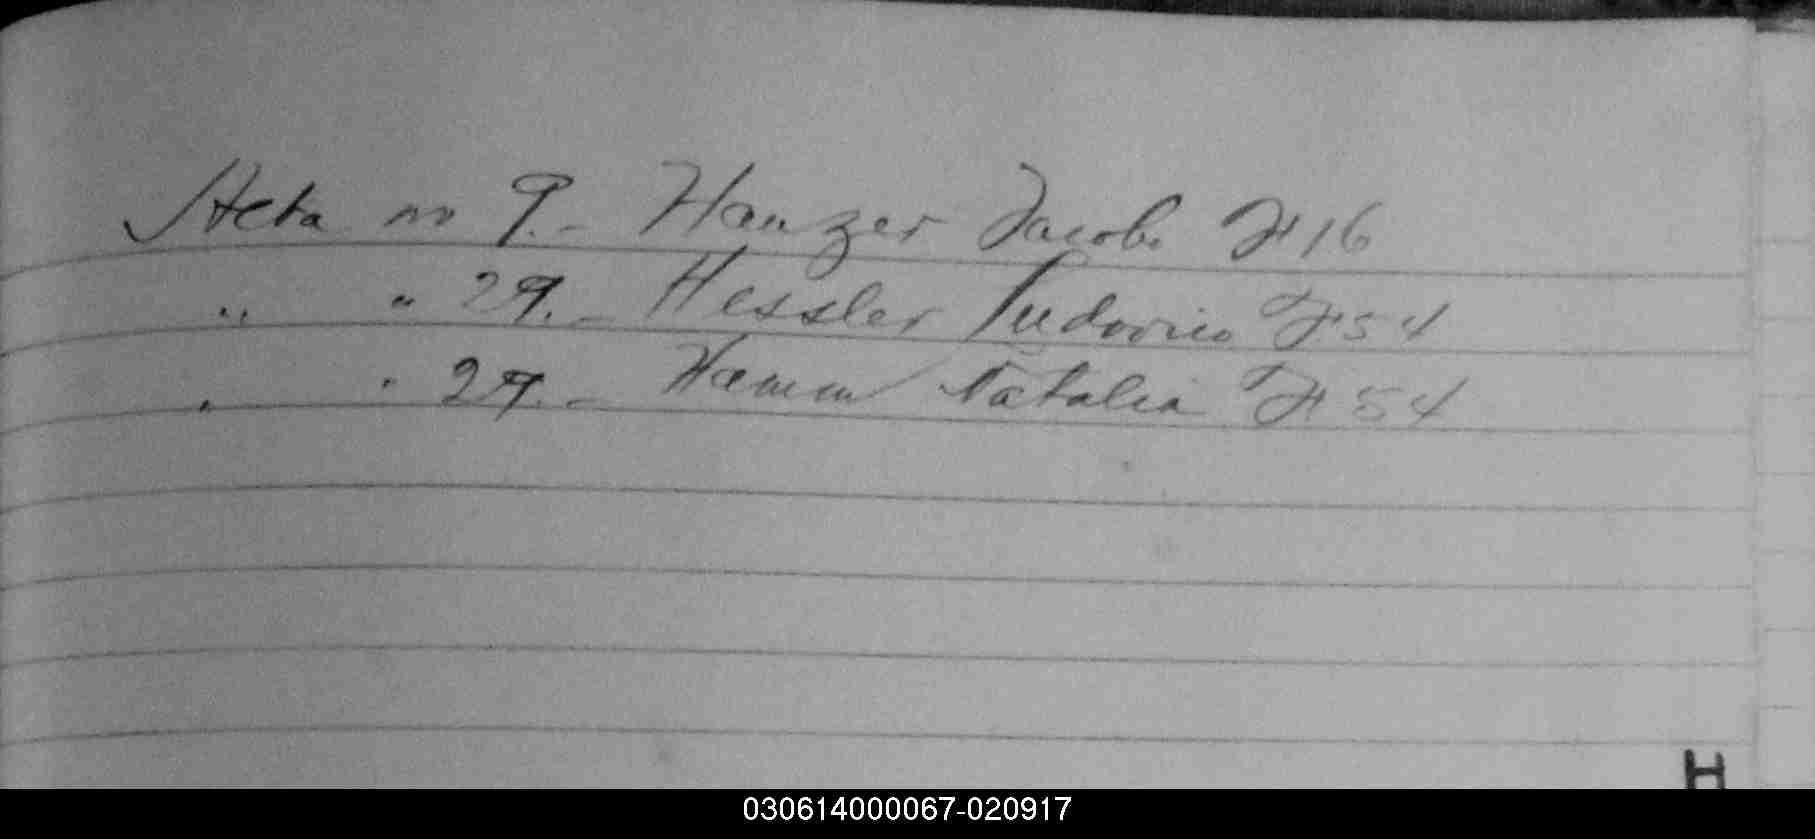 Acta no 9.- Hanzer Jacobo F 16
" " 29.- Hessler Ludovico F 54
" " 29.- Hamm Natalia F 54
H
030614000067-020917